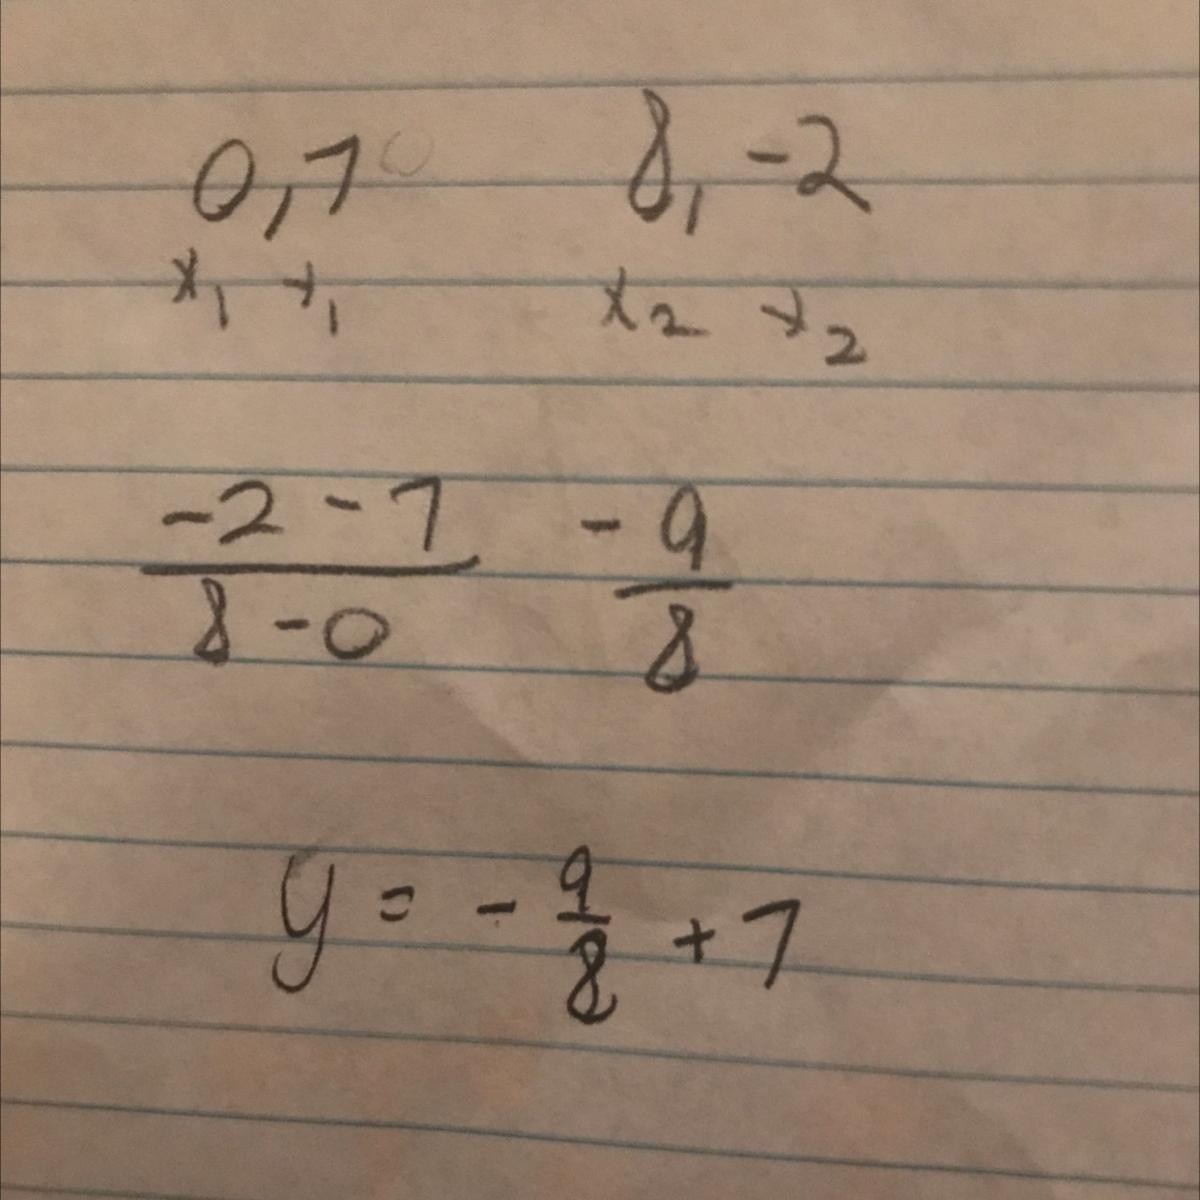 0,7 8,-2
x1 y1 x2 y2
-2-7/8-0 -9/8
y = -9/8 +7